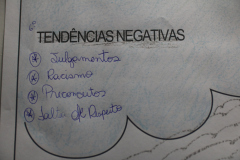 TENDÊNCIAS NEGATIVAS
Julgamentos
Racismo
Preconcutos
Falta de Respeito